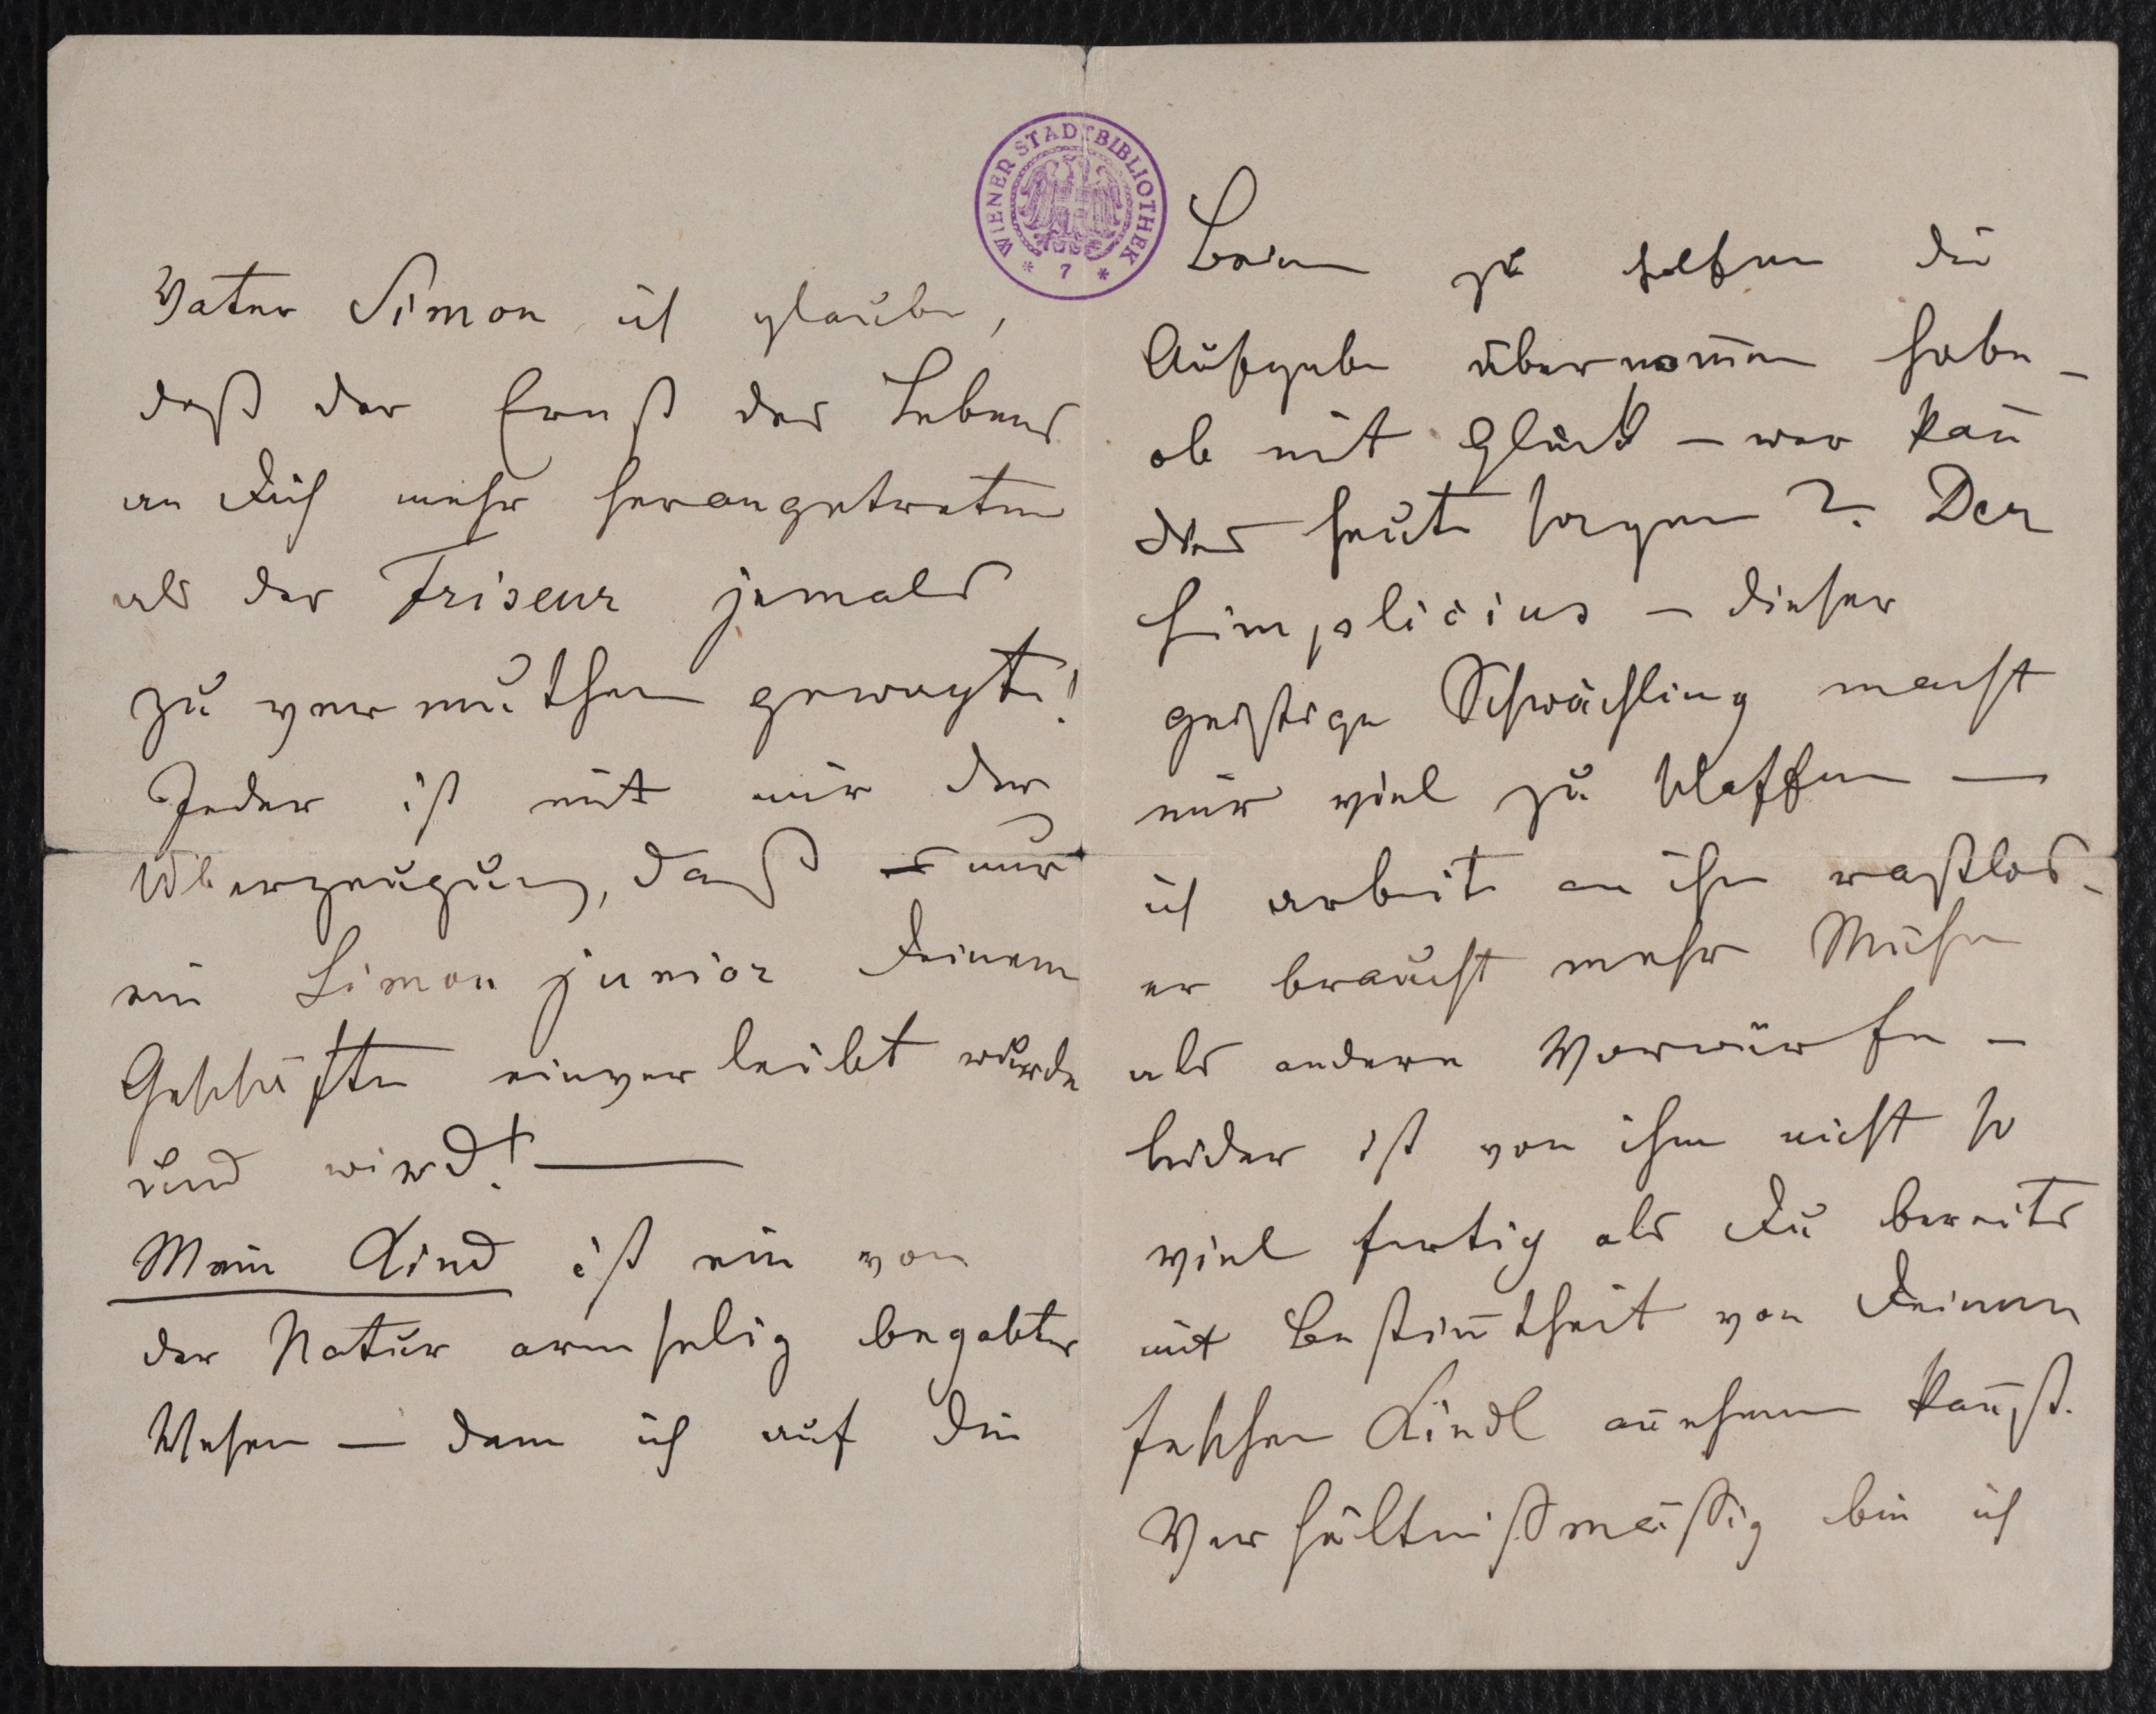 Vater Simon ich glaube,
daß der Ernst des Lebens
an Dich mehr herangetreten
als der Friseur jemals
zu vermuthen gewagt!
Jeder ist mit mir der
Überzeugung, daß nur
ein Simon junior Deinem
Geschäfte einverleibt wurde
und wird!—
Mein Kind ist ein von
der Natur armselig begabtes
Wesen — dem ich auf die
WIENER STADTBIBLIOTHEK
* 7 *
Beine zu helfen die
Aufgabe übernom̅en habe –
ob mit Glück – wer kan̅
das heute sagen? Der
Simplicius – dieser
geistige Schwächling macht
mir viel zu schaffen —
ich arbeite an ihm rastlos –
er braucht mehr Mühe
als andere Vorwürfe –
leider ist von ihm nicht so
viel fertig als Du bereits
mit Bestim̅theit von Deinem
feschen Kindl an̅ehmen kan̅st.
Verhältnißmäßig bin ich